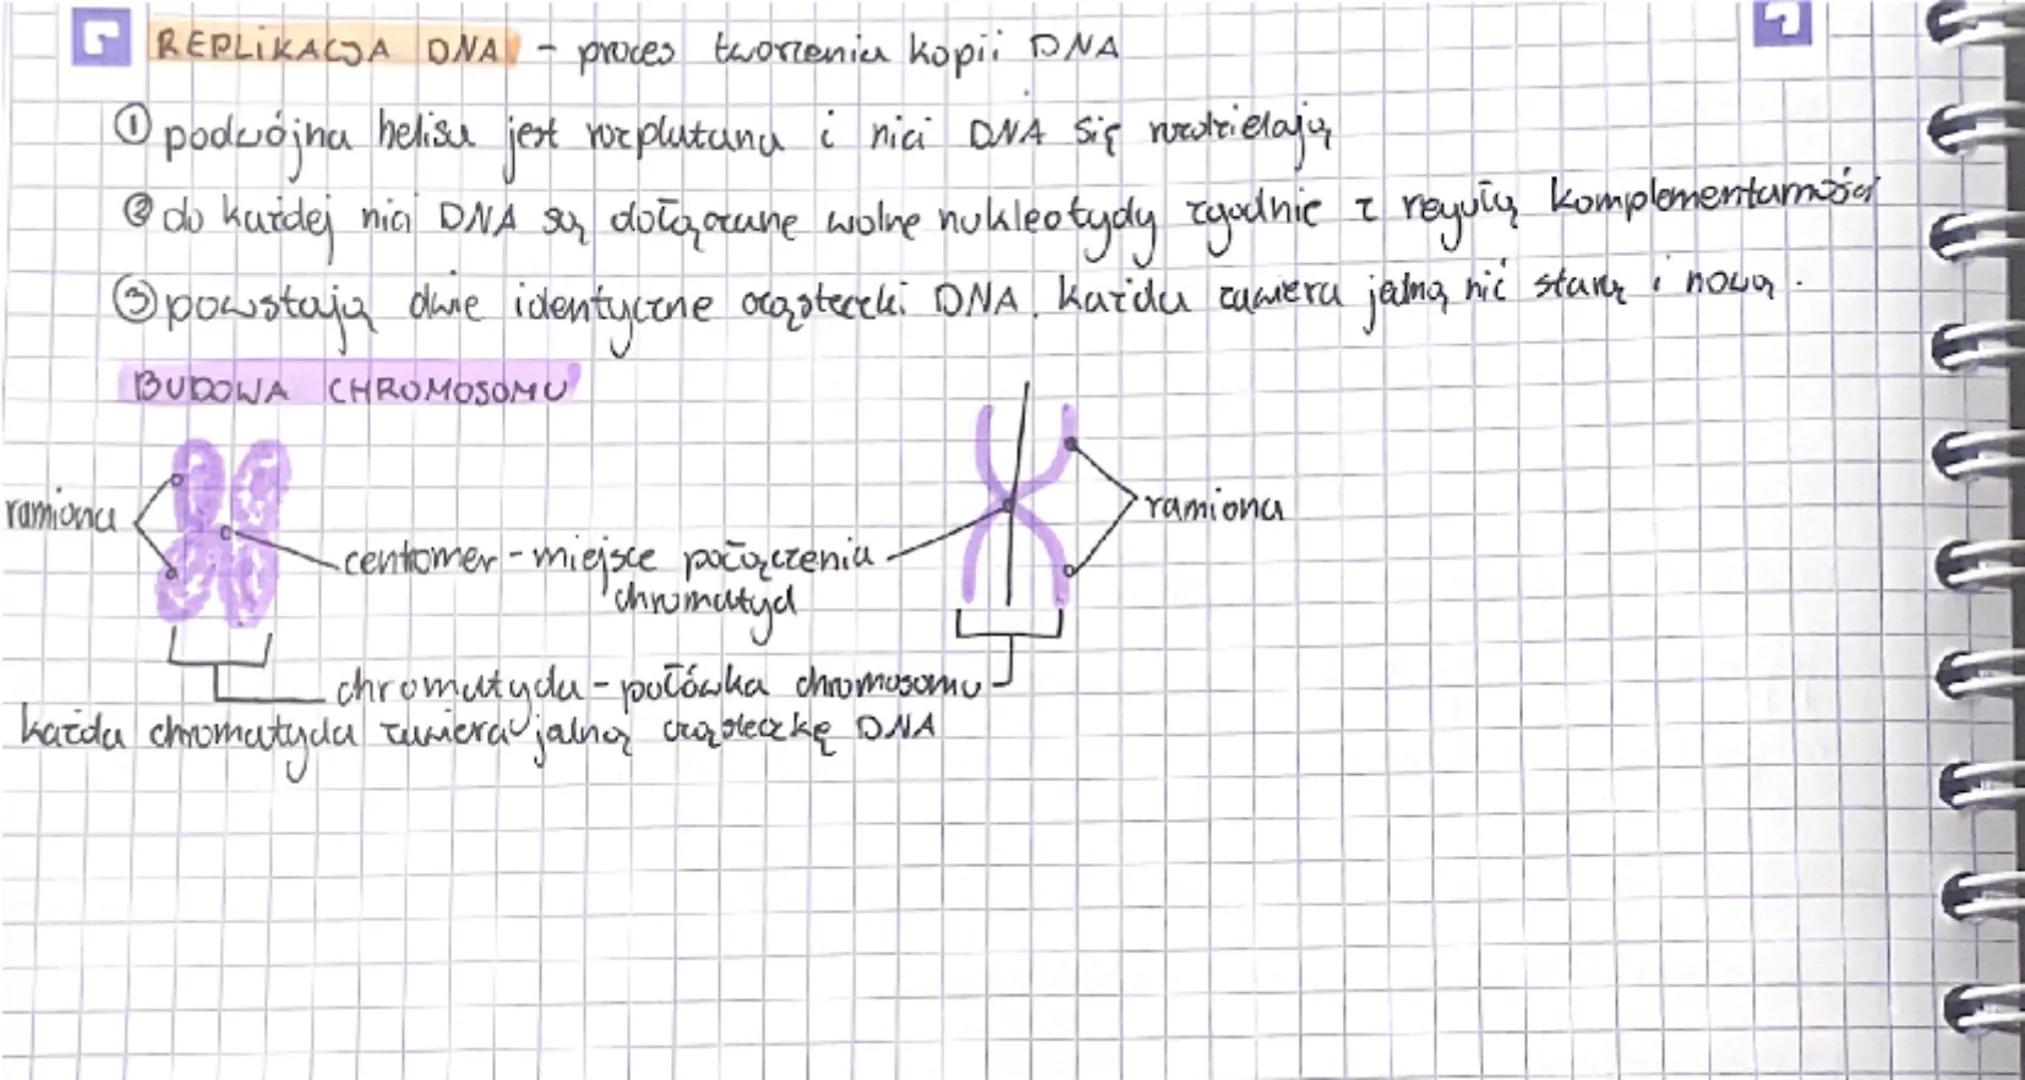 REPLIKACJA DNA - proces tworzenia kopii DNA
① podwójna helisa jest rozplatana i nici DNA się rozdzielają
② do każdej nici DNA są dołączane wolne nukleotydy zgodnie z regułą komplementarności
③ powstają dwie identyczne cząsteczki DNA. Każda zawiera jedną nić starą i nową.
BUDOWA CHROMOSOMU
ramiona
ramiona
centromer - miejsce połączenia
chromatyd
chromatyda - połówka chromosomu
każda chromatyda zawiera jedną cząsteczkę DNA